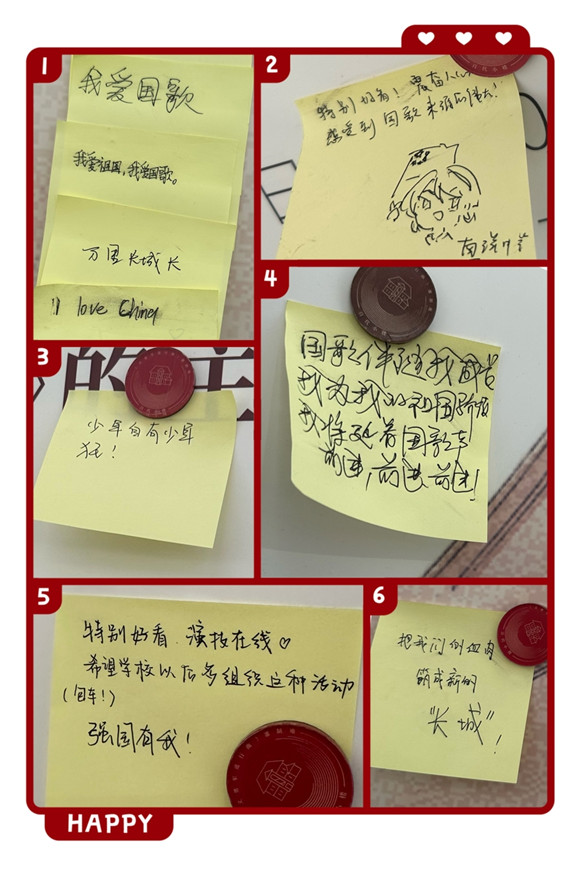 1
我爱国歌
我爱祖国,我爱国歌。
万里长城长
I love China
2
特别好看!
感受到国歌来源的伟大!
3
的主
少年自有少年
狂!
4
国歌伴
我为我的祖国
我将
国歌
前进,前进,前进!
5
特别好看 演技在线♡
希望学校以后多组织这种活动
(包车!)
强国有我!
6
把我们的血肉
筑成新的
"长城"!
HAPPY